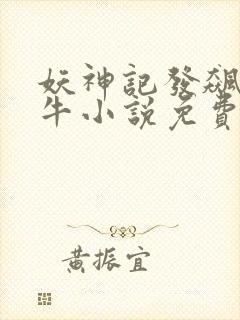 妖神記發飆
牛小說免費
黃振宜